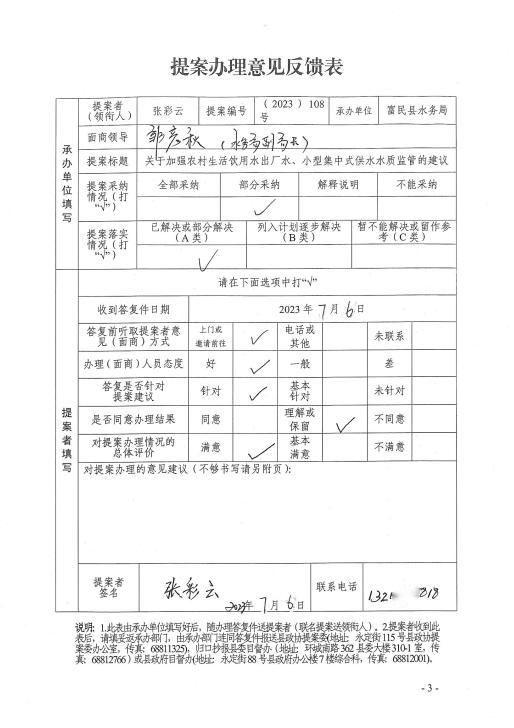 提案办理意见反馈表
承办单位填写
提案者（领衔人） 张彩云 提案编号 （2023）108号 承办单位 富民县水务局
面商领导 邹彦秋（水务局副局长）
提案标题 关于加强农村生活饮用水出厂水、小型集中式供水水质监管的建议
提案采纳情况（打“√”） 全部采纳 部分采纳 解释说明 不能采纳
√
提案落实情况（打“√”） 已解决或部分解决（A 类） 列入计划逐步解决（B 类） 暂不能解决或留作参考（C 类）
√
提案者填写
请在下面选项中打“√”
收到答复件日期 2023 年 7 月 6 日
答复前听取提案者意见（面商）方式 上门或邀请前往 √ 电话或其他 未联系
办理（面商）人员态度 好 √ 一般 差
答复是否针对提案建议 针对 √ 基本针对 未针对
是否同意办理结果 同意 理解或保留 √ 不同意
对提案办理情况的总体评价 满意 √ 基本满意 不满意
对提案办理的意见建议（不够书写请另附页）：
提案者签名 张彩云 联系电话
2023年 7 月 6 日
说明：1.此表由承办单位填写好后，随办理答复件送提案者（联名提案送领衔人）。2.提案者收到此
表后，请填妥返承办部门，由承办部门连同答复件报送县政协提案委(地址：永定街 115 号县政协提
案委办公室，传真：68811325)，归口抄报县委目督办（地址：环城南路 362 县委大楼 310-1 室，传
真：68812766）或县政府目督办(地址：永定街 88 号县政府办公楼 7 楼综合科，传真：68812001)。
- 3 -